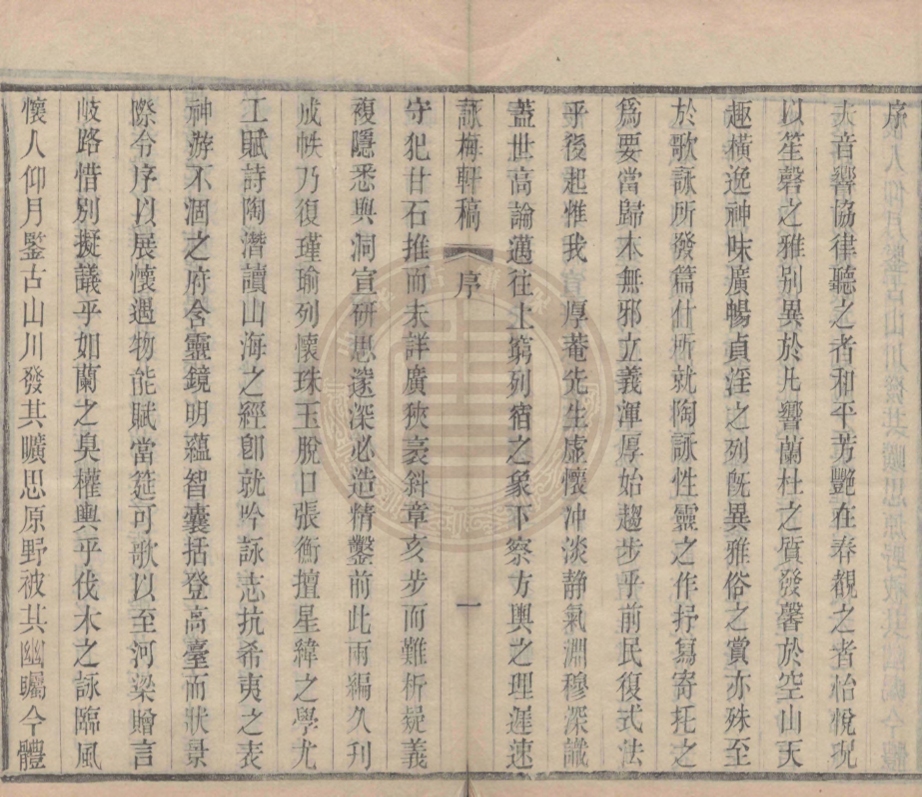 序
大音響協律聽之者和平芳艷在春觀之者怡悅況
以笙磬之雅別異於凡響蘭杜之質發馨於空山天
趣橫逸神味廣暢貞淫之列既異雅俗之賞亦殊至
於歌詠所發篇什所就陶詠性靈之作抒寫寄托之
爲要當歸本無邪立義渾厚始趨步乎前民復式法
乎後起惟我 厚菴先生虛懷冲淡静氣淵穆深識
蓋世高論邁往上窮列宿之象不察方輿之理遲速
詠梅軒稿 序 一
守犯甘石推而未詳廣狹袤斜章亥步而難析疑義
複隱悉與洞宣研思邃深必造精鑿前此兩編久刊
成帙乃復瑾瑜列懷珠玉脫口張衡擅星緯之學尤
工賦詩陶潛讀山海之經卽就吟詠志抗希夷之表
神游不涸之府含靈鏡明蘊智囊括登高臺而狀景
際令序以展懷遇物能賦當筵可歌以至河梁贈言
岐路惜別擬議乎如蘭之臭權輿乎伐木之詠臨風
懷人仰月鑒古山川發其曠思原野被其幽矚今體